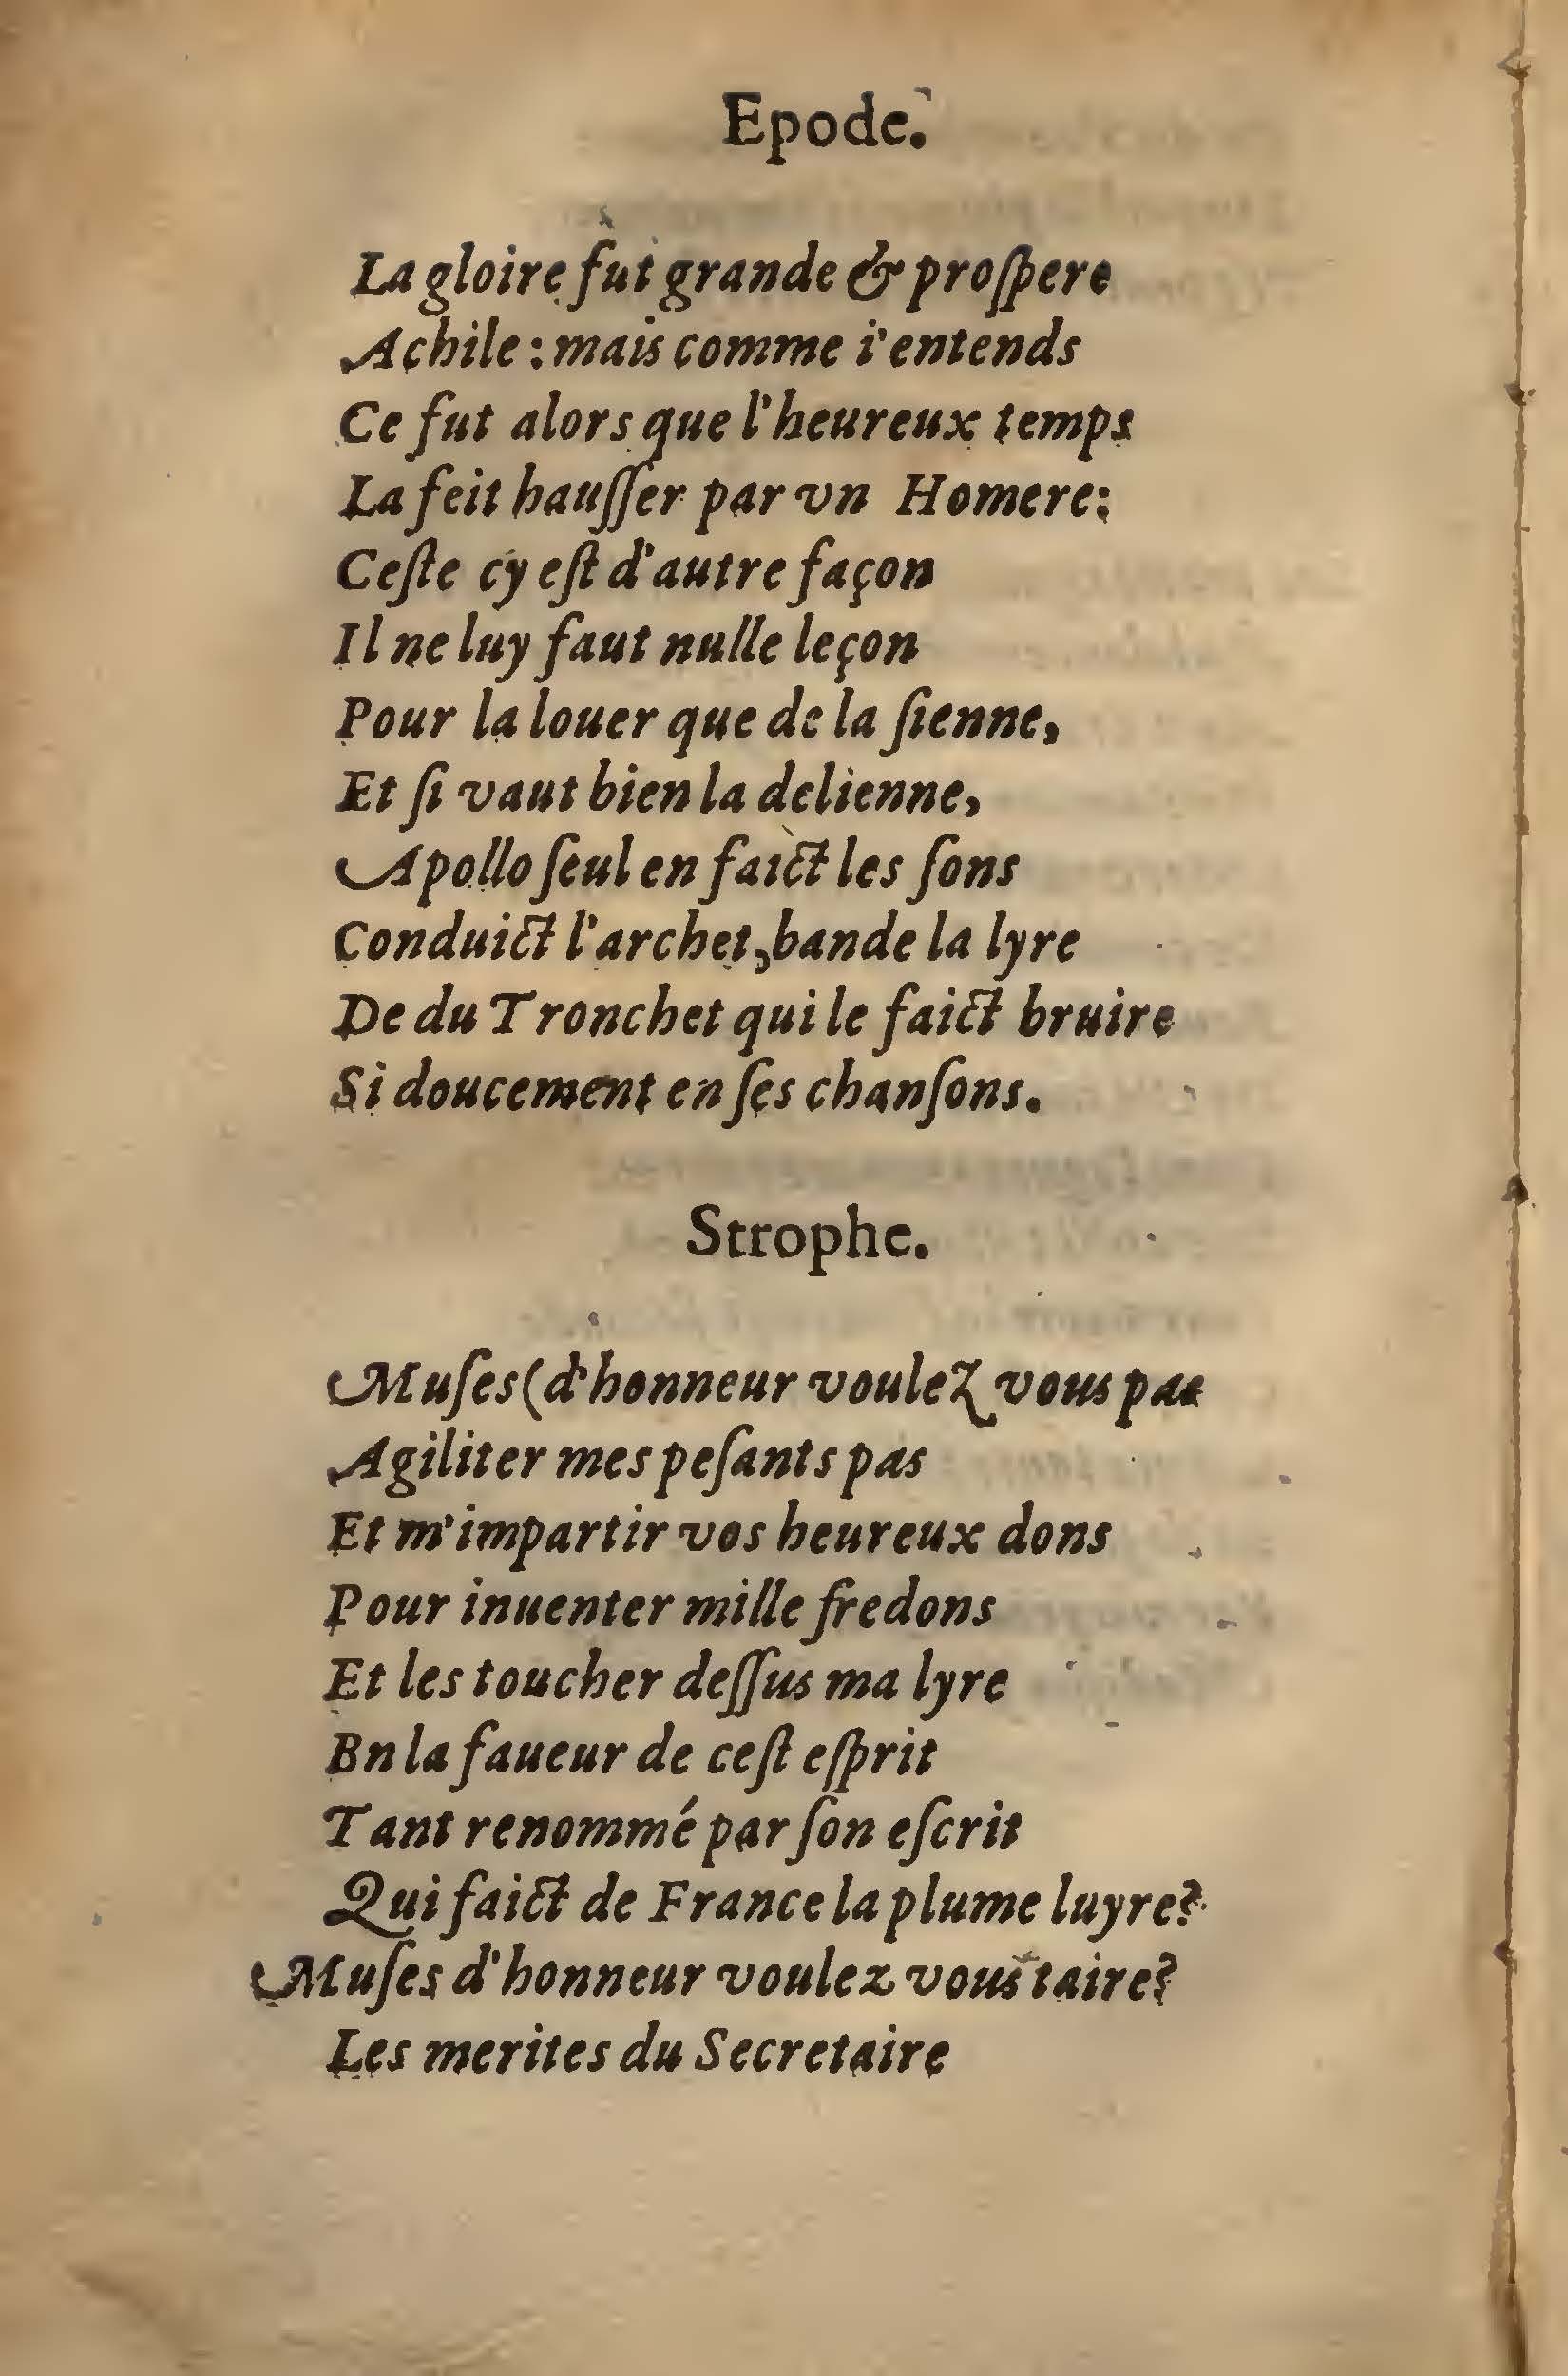 Epode.
La gloire fut grande & proſpere
Achile : mais comme i'entends
Ce fut alors que l'heureux temps
La feit hauſſer par vn Homere:
Ceſte cy eſt d'autre façon
Il ne luy faut nulle leçon
Pour la louer que de la ſienne,
Et ſi vaut bien la delienne,
Apollo ſeul en faict les ſons
Conduict l'archet, bande la lyre
De du Tronchet qui le faict bruire
Si doucement en ſes chanſons.
Strophe.
Muſes (d'honneur voulez vous pas
Agiliter mes peſants pas
Et m'impartir vos heureux dons
Pour inuenter mille fredons
Et les toucher deſſus ma lyre
Bn la faueur de ceſt eſprit
Tant renommé par ſon eſcrit
Qui faict de France la plume luyre?
Muſes d'honneur voulez vous taire?
Les merites du Secretaire